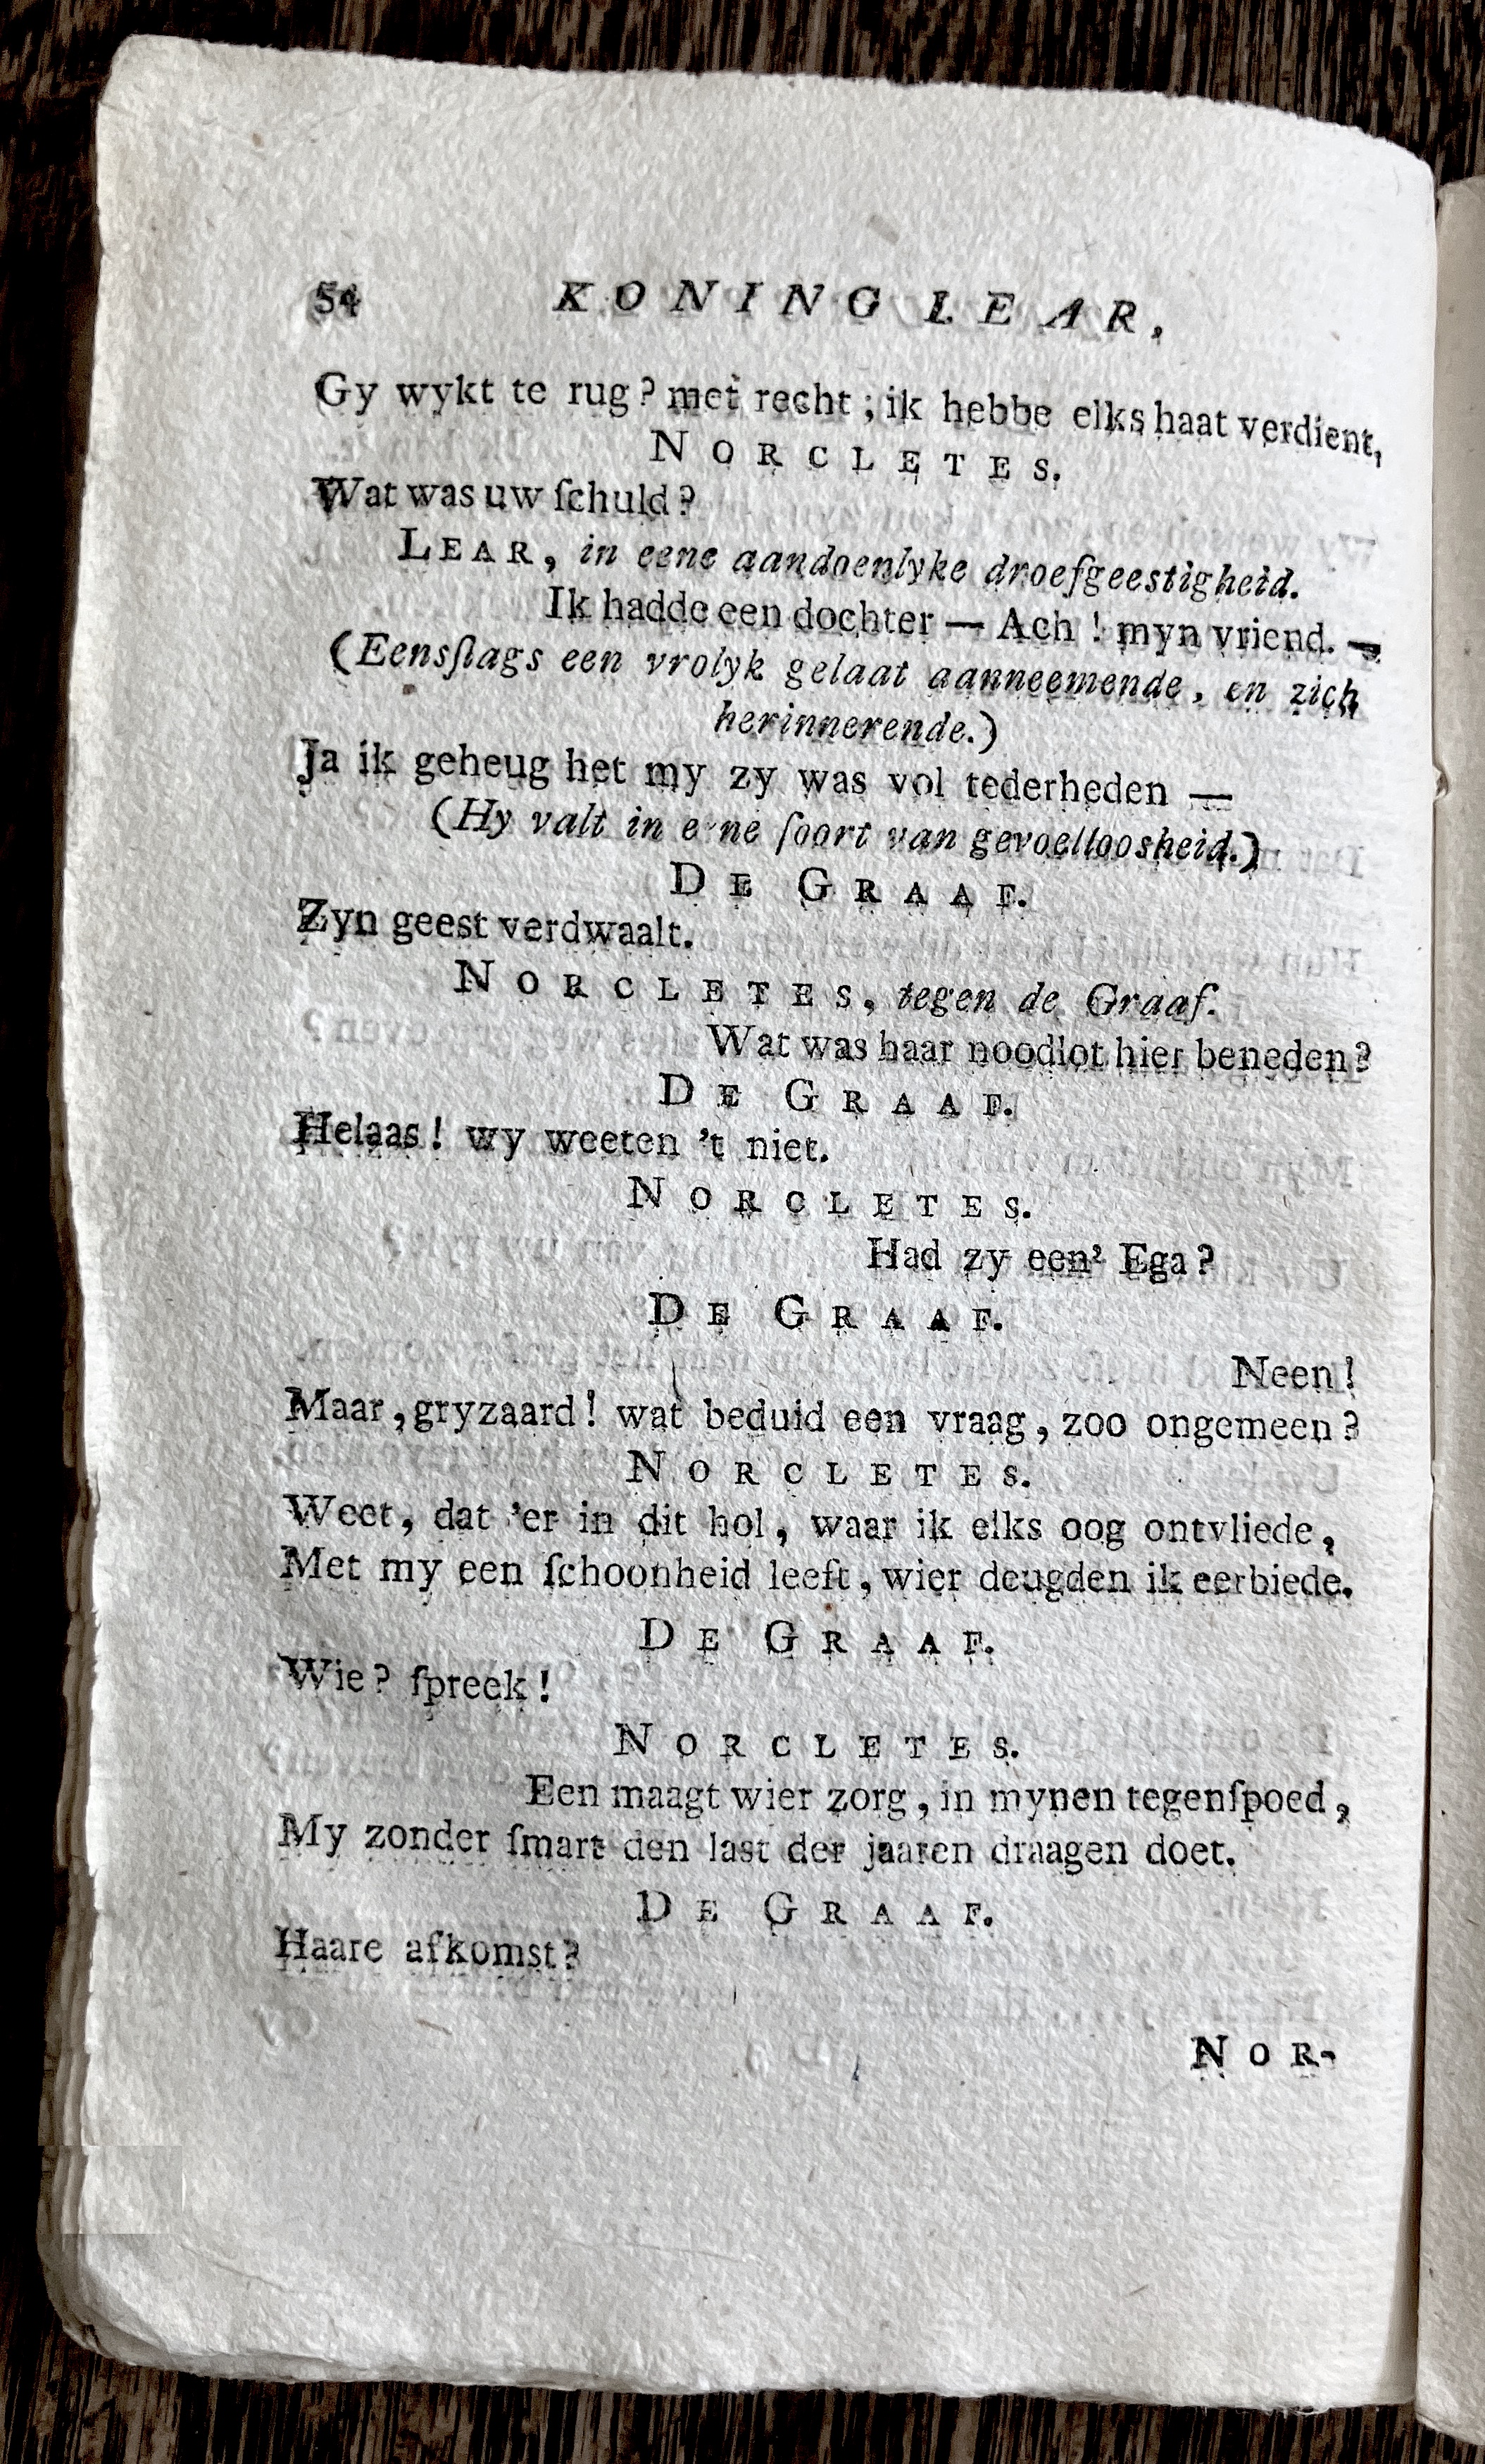 54 KONING LEAR,
Gy wykt te rug? met recht; ik hebbe elks haat verdient,
NORCLETES.
Wat was uw ſchuld?
LEAR, in eene aandoenlyke droefgeestigheid.
Ik hadde een dochter — Ach! myn vriend. —
(Eensſlags een vrolyk gelaat aanneemende, en zich
herinnerende.)
Ja ik geheug het my zy was vol tederheden —
(Hy valt in eene ſoort van gevoelloosheid.)
DE GRAAF.
Zyn geest verdwaalt.
NORCLETES, tegen de Graaf.
Wat was haar noodlot hier beneden?
DE GRAAF.
Helaas! wy weeten 't niet.
NORCLETES.
Had zy een' Ega?
DE GRAAF.
Neen!
Maar, gryzaard! wat beduid een vraag, zoo ongemeen?
NORCLETES.
Weet, dat 'er in dit hol, waar ik elks oog ontvliede,
Met my een ſchoonheid leeft, wier deugden ik eerbiede.
DE GRAAF.
Wie? ſpreek!
NORCLETES.
Een maagt wier zorg, in mynen tegenſpoed,
My zonder ſmart den last der jaaren draagen doet.
DE GRAAF.
Haare afkomst?
NOR-